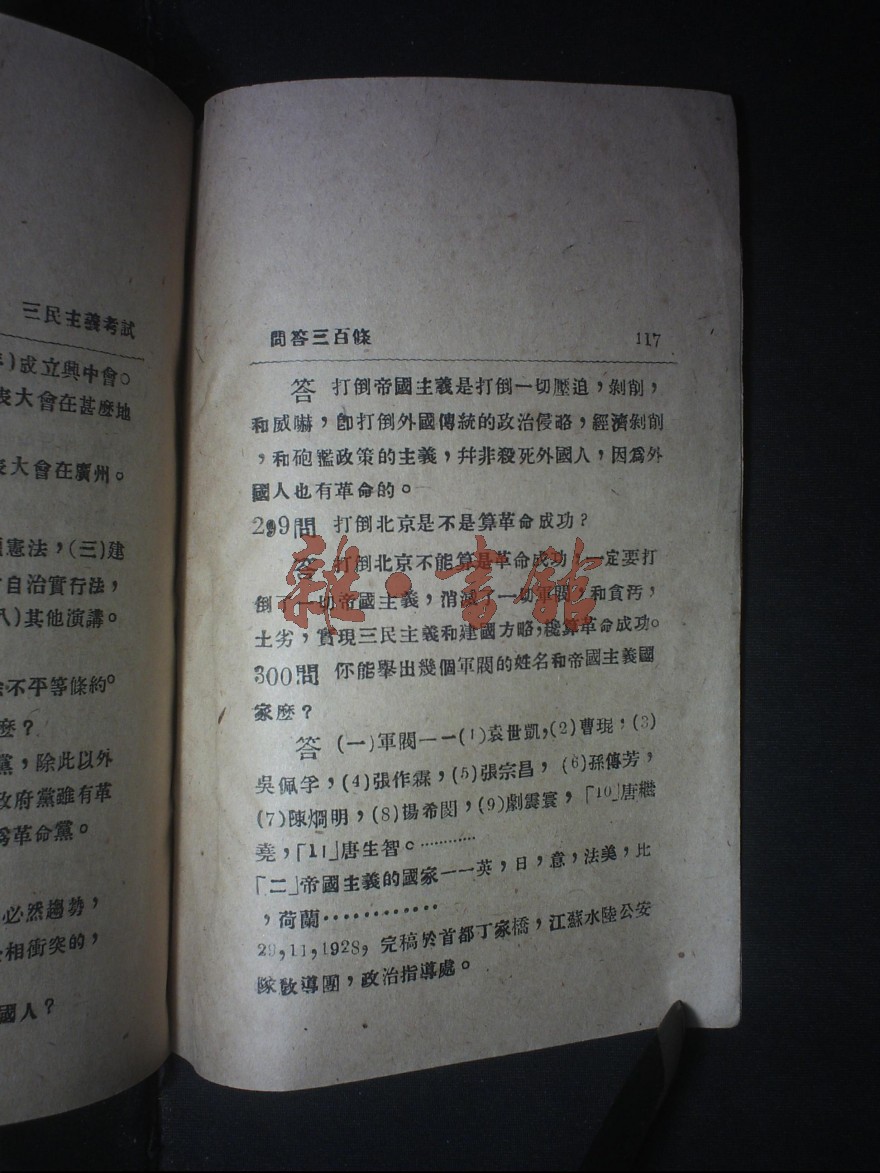 三民主義考試
)成立興中會。
表大會在甚麼地
表大會在廣州。
憲法，(三)建
自治實行法，
八)其他演講。
不平等條約。
麼？
黨，除此以外
政府黨雖有革
為革命黨。
必然趨勢，
相衝突的，
國人？
問答三百條 117
答 打倒帝國主義是打倒一切壓迫，剝削，
和威嚇，卽打倒外國傳統的政治侵略，經濟剝削
，和砲艦政策的主義，幷非殺死外國人，因為外
國人也有革命的。
299問 打倒北京是不是算革命成功？
答 打倒北京不能算是革命成功，一定要打
倒了一切帝國主義，消滅了一切軍閥，和貪汚，
土劣，實現三民主義和建國方略，纔算革命成功。
300問 你能舉出幾個軍閥的姓名和帝國主義國
家麼？
答 (一)軍閥——(1)袁世凱，(2)曹琨，(3)
吳佩孚，(4)張作霖，(5)張宗昌，(6)孫傳芳，
(7)陳烱明，(8)揚希閔，(9)劇震寰，「10」唐繼
堯，「11」唐生智。…………
「二」帝國主義的國家——英，日，意，法美，比
，荷蘭…………
29,11,1928，完稿於首都丁家橋，江蘇水陸公安
隊敎導團，政治指導處。
雜·書館